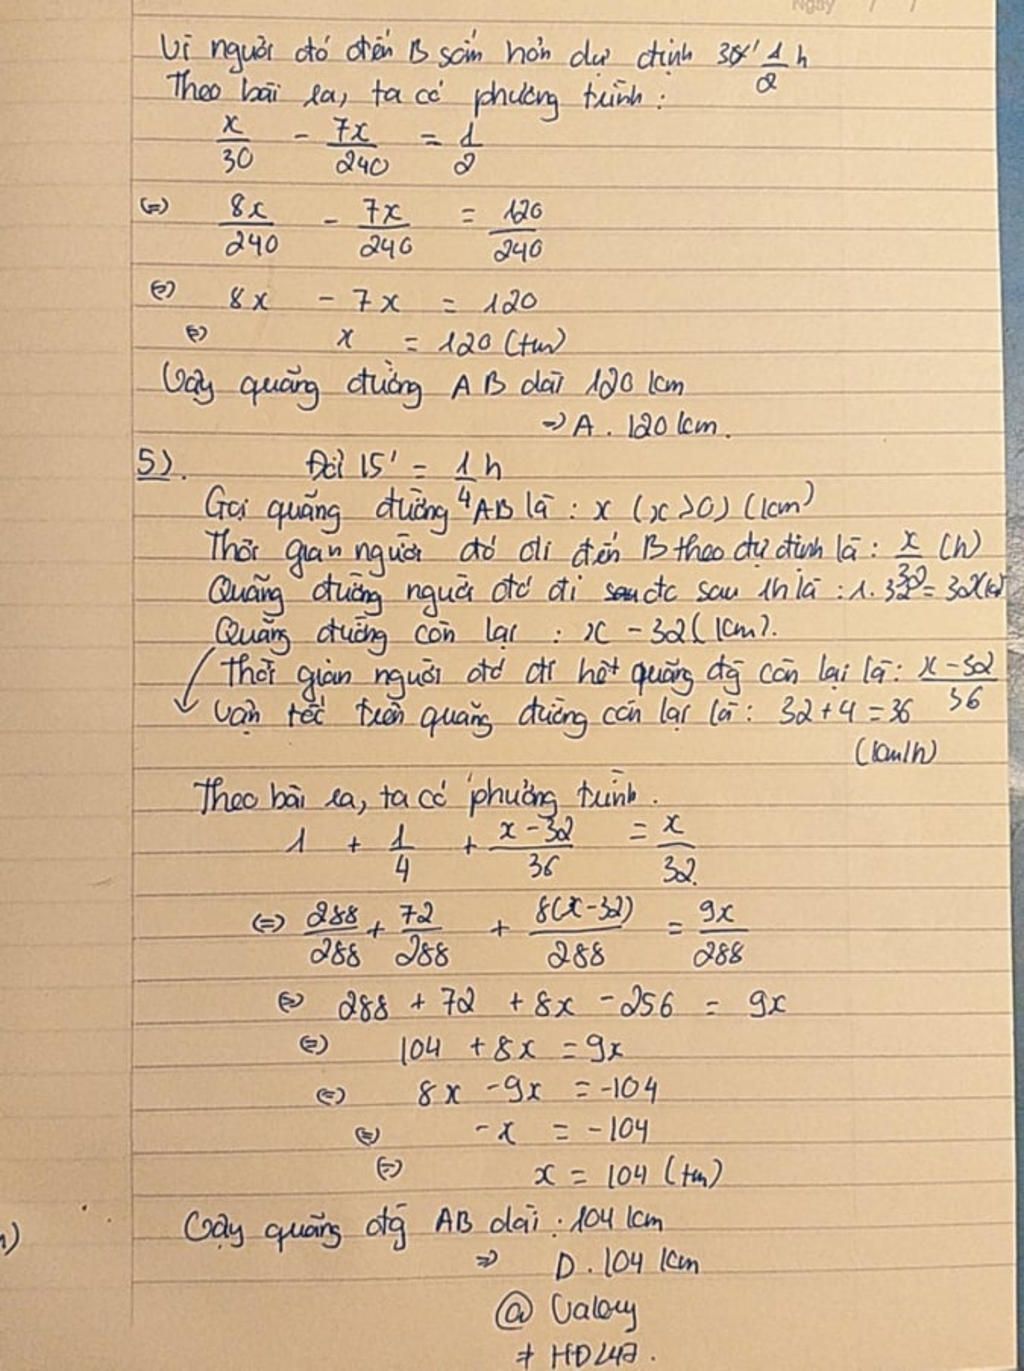 Ngày / /
Vì người đó đến B sớm hơn dự định 30' 1/2 h
Theo bài ra, ta có phương trình :
x/30 - 7x/240 = 1/2
(=) 8x/240 - 7x/240 = 120/240
(=) 8x - 7x = 120
(=) x = 120 (tm)
Vậy quãng đường AB dài 120 km
=> A. 120 km.
5). Đổi 15' = 1/4 h
Gọi quãng đường AB là : x (x > 0) (km)
Thời gian người đó đi đến B theo dự định là : x/32 (h)
Quãng đường người đó đi đc sau 1h là : 1. 32 = 32 (km)
Quãng đường còn lại : x - 32 (km).
Thời gian người đó đi hết quãng đg còn lại là : x-32/36
Vận tốc trên quãng đường còn lại là : 32 + 4 = 36
(km/h)
Theo bài ra, ta có phương trình.
1 + 1/4 + x-32/36 = x/32
(=) 288/288 + 72/288 + 8(x-32)/288 = 9x/288
(=) 288 + 72 + 8x - 256 = 9x
(=) 104 + 8x = 9x
(=) 8x - 9x = -104
(=) -x = -104
(=) x = 104 (tm)
Vậy quãng đg AB dài : 104 km
=> D. 104 km
@ Valery
≠ HD247.